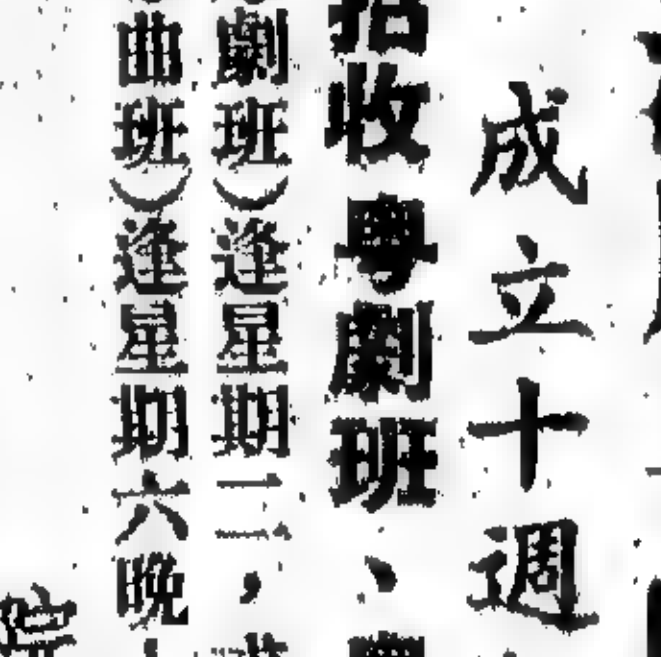 成立十週
招收粵劇班、
劇班）逢星期二，
曲班）逢星期六晚